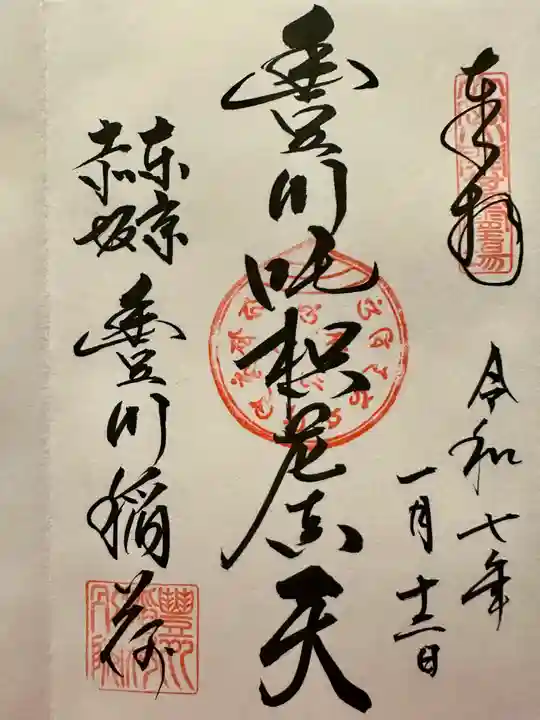 奉拝
令和七年
一月十三日
豊川吒枳尼真天
東京
赤坂
豊川稲荷